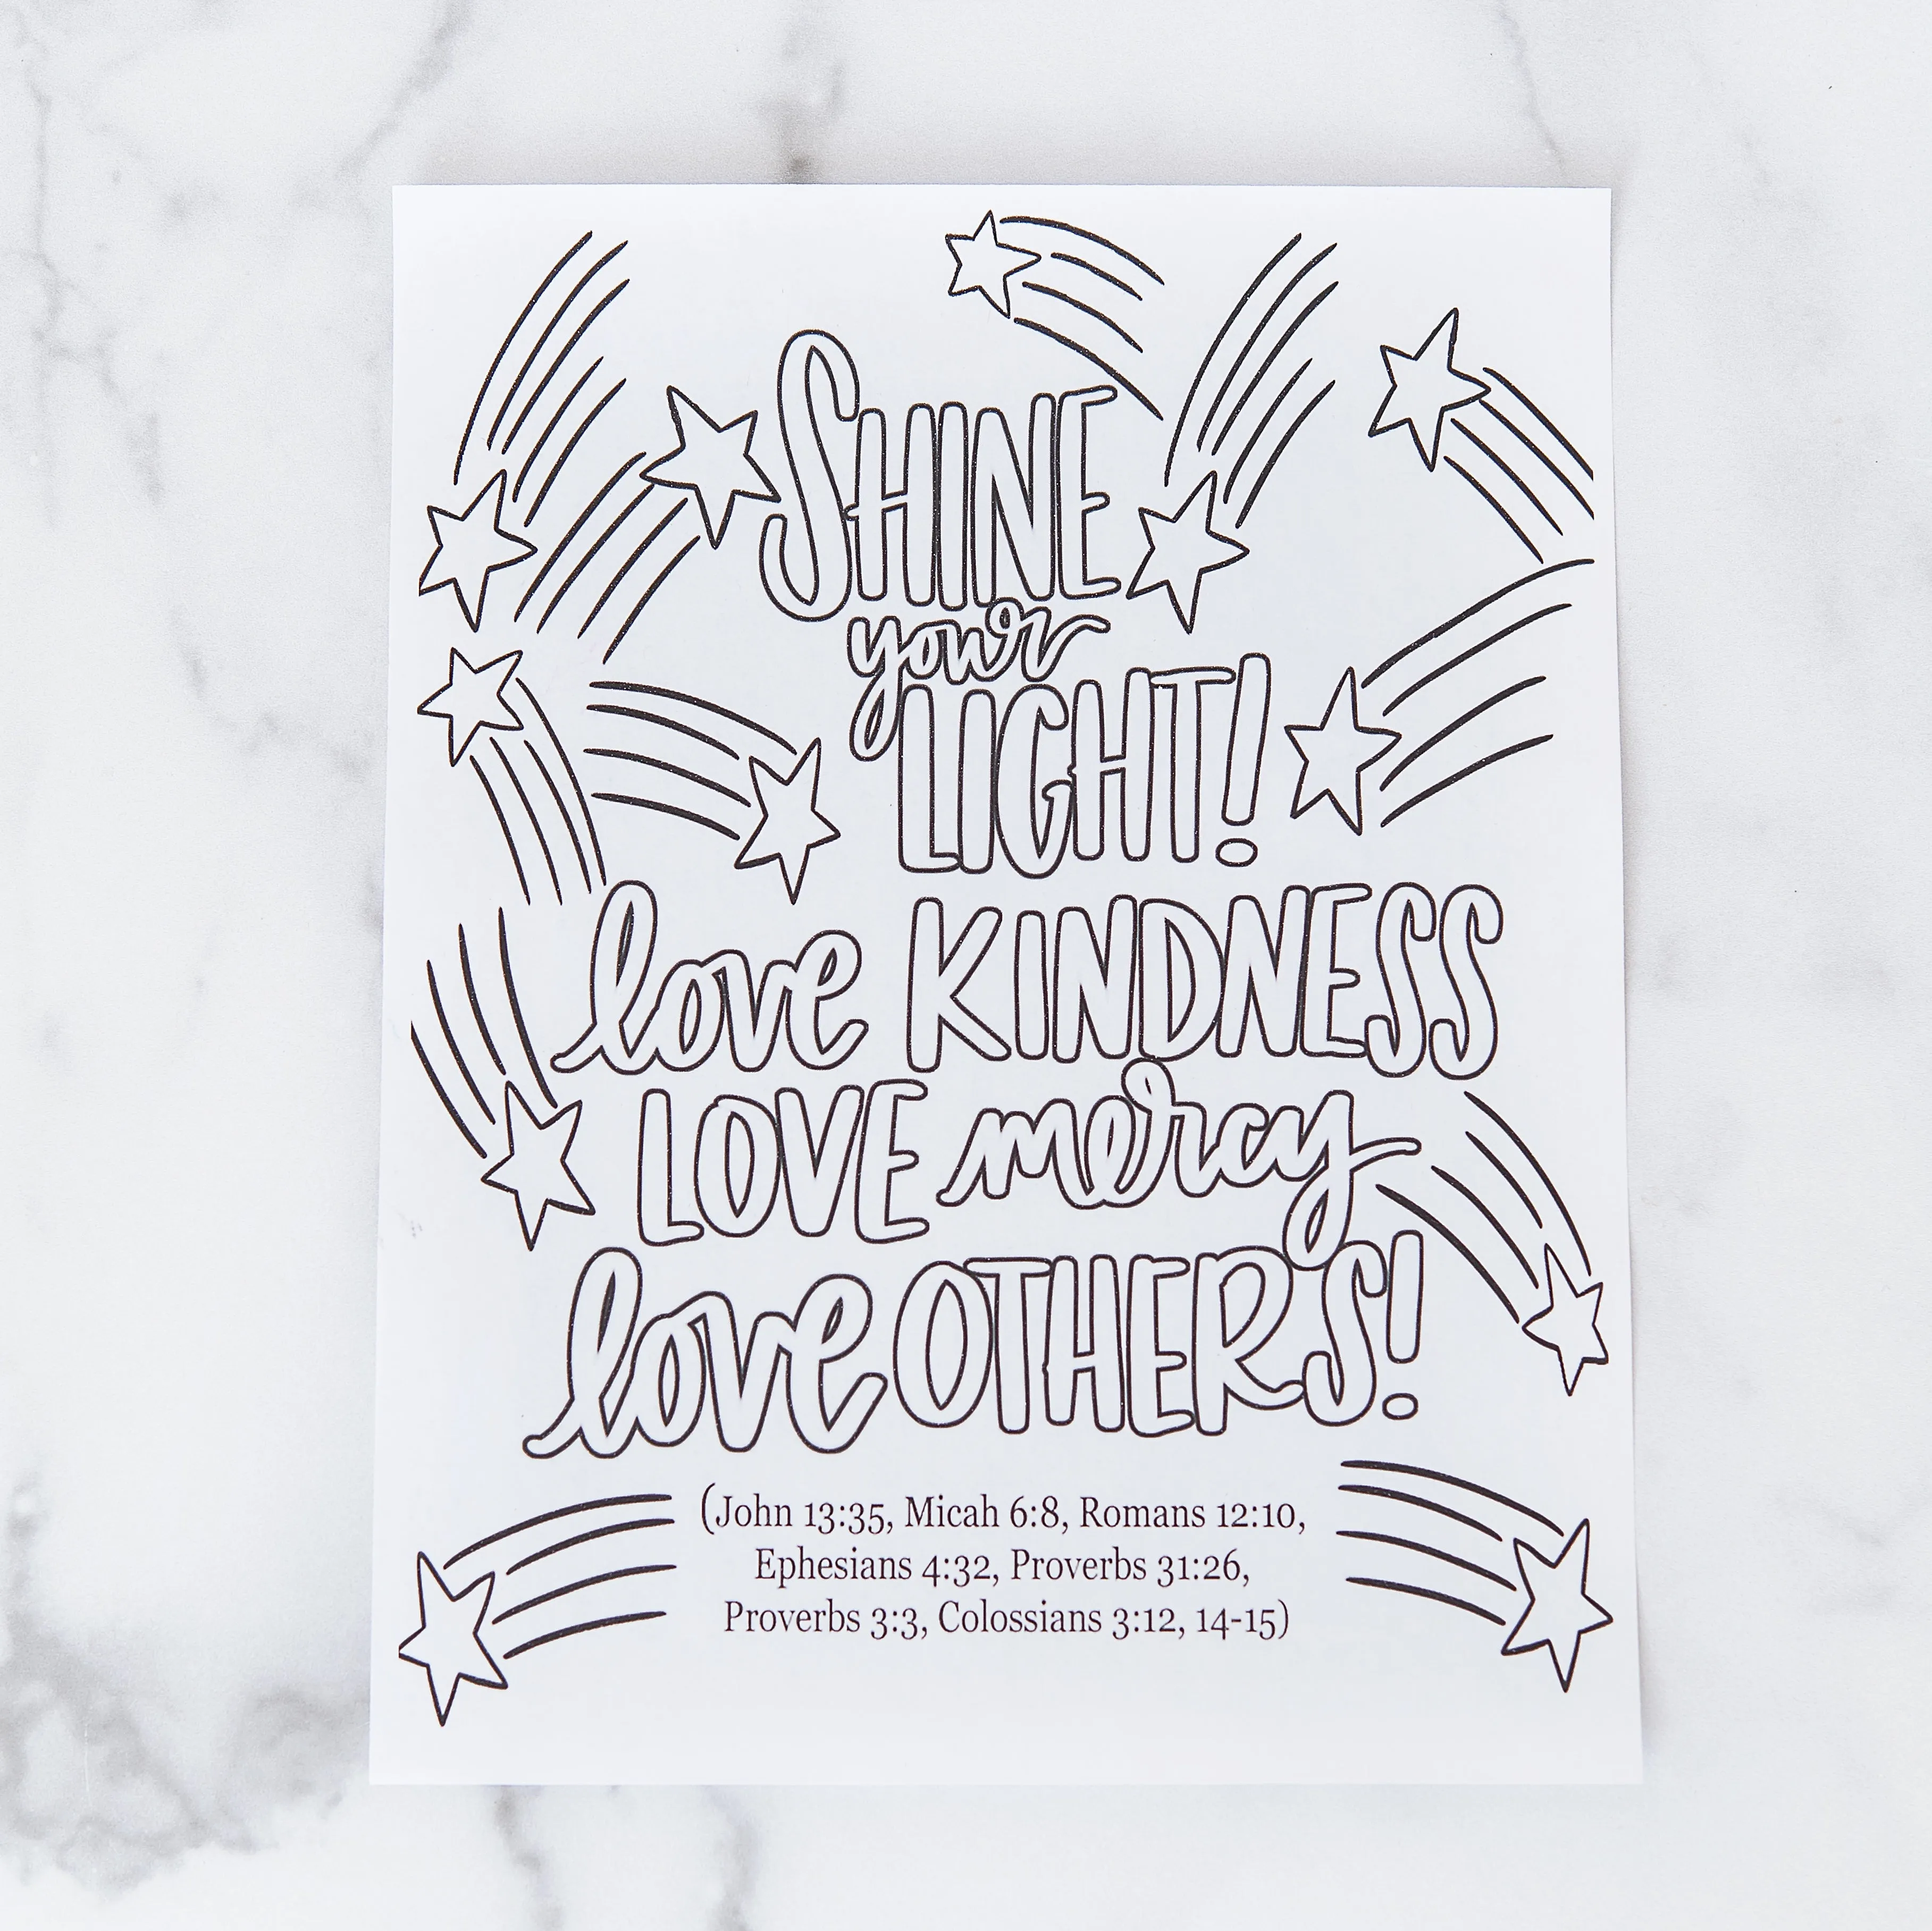 SHINE
your
LIGHT!
love KINDNESS
LOVE mercy
love OTHERS!
(John 13:35, Micah 6:8, Romans 12:10,
Ephesians 4:32, Proverbs 31:26,
Proverbs 3:3, Colossians 3:12, 14-15)